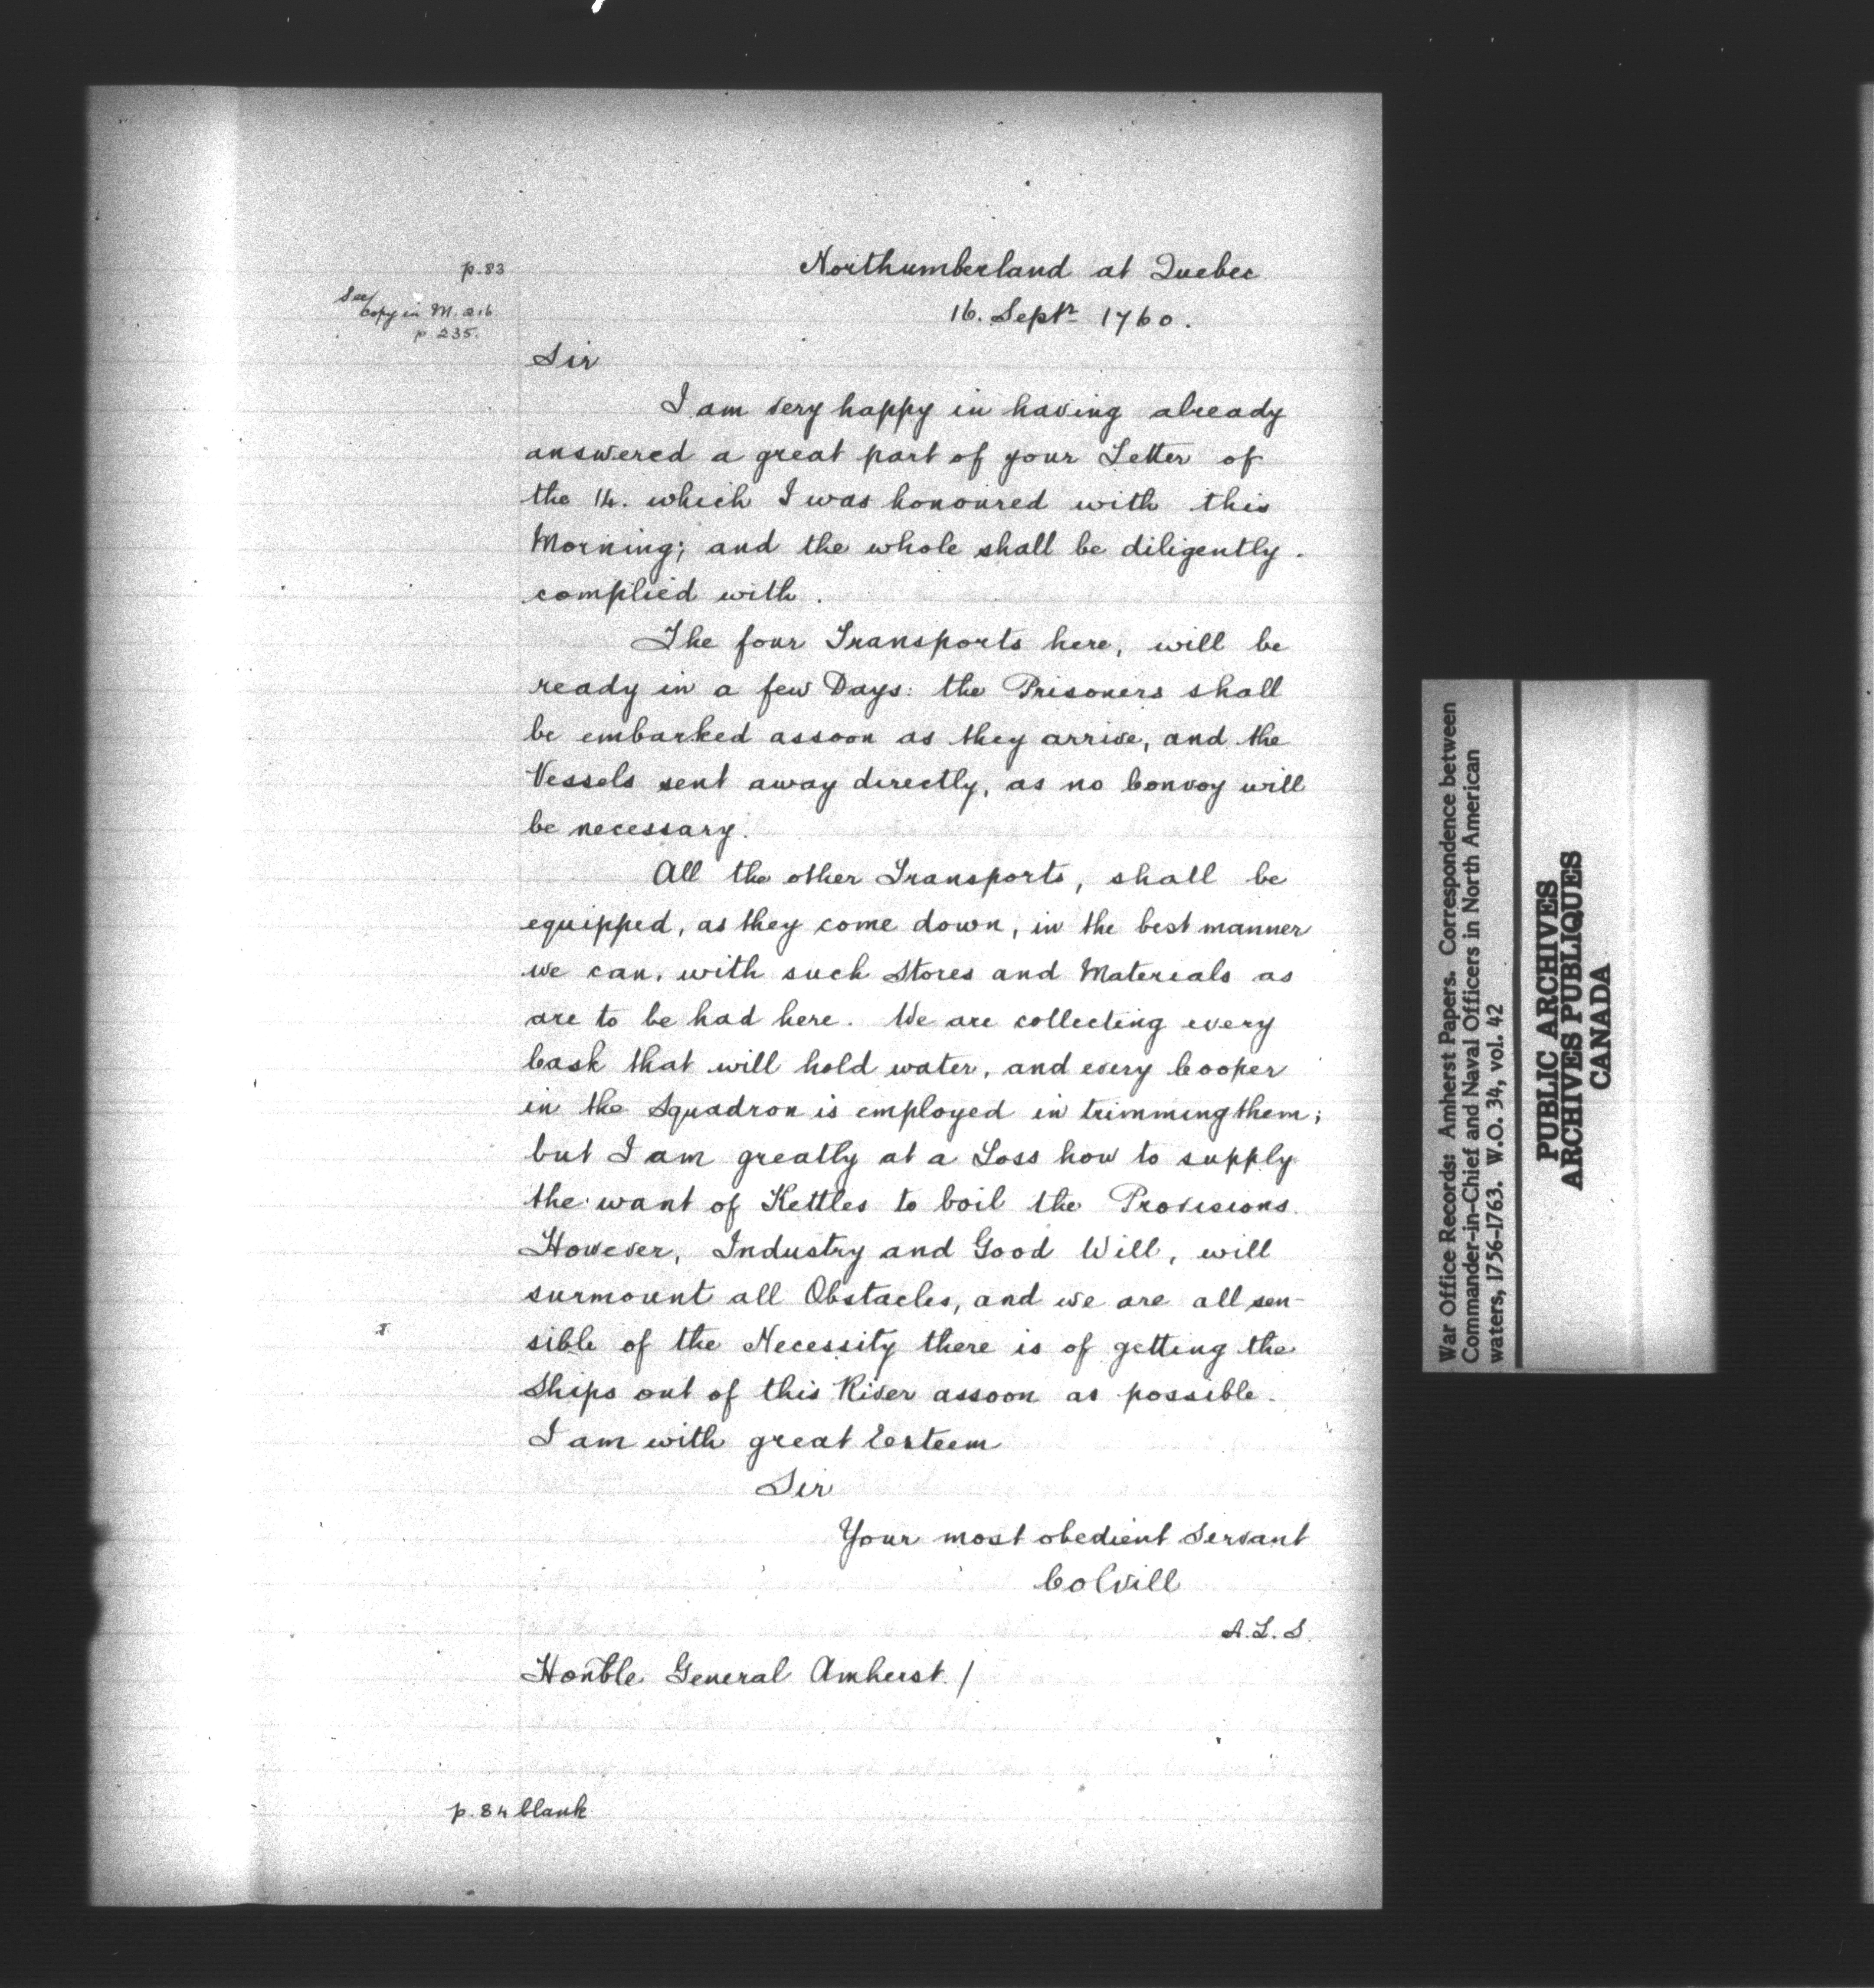 p. 83
See/
copy in M. 216
p 235.
Northumberland at Quebec
16. Septr 1760.
Sir
I am very happy in having already
answered a great part of your Letter of
the 14. which I was honoured with this
Morning; and the whole shall be diligently.
complied with.
The four Transports here, will be
ready in a few Days: the Prisoners shall
be embarked assoon as they arrive, and the
Vessels sent away directly, as no Convoy will
be necessary.
All the other Transports, shall be
equipped, as they come down, in the best manner
we can, with such Stores and Materials as
are to be had here. We are collecting every
Cask that will hold water, and every Cooper
in the Squadron is employed in trimming them;
but I am greatly at a Loss how to supply
the want of Kettles to boil the Provisions.
However, Industry and Good Will, will
surmount all Obstacles, and we are all sen-
sible of the Necessity there is of getting the
Ships out of this River assoon as possible.
I am with great Esteem
Sir
Your most obedient Servant
Colvill
A.L.S.
Honble General Amherst./
p. 84 blank
War Office Records: Amherst Papers. Correspondence between
Commander-in-Chief and Naval Officers in North American
waters, 1756-1763. W.O. 34, vol. 42
PUBLIC ARCHIVES
ARCHIVES PUBLIQUES
CANADA